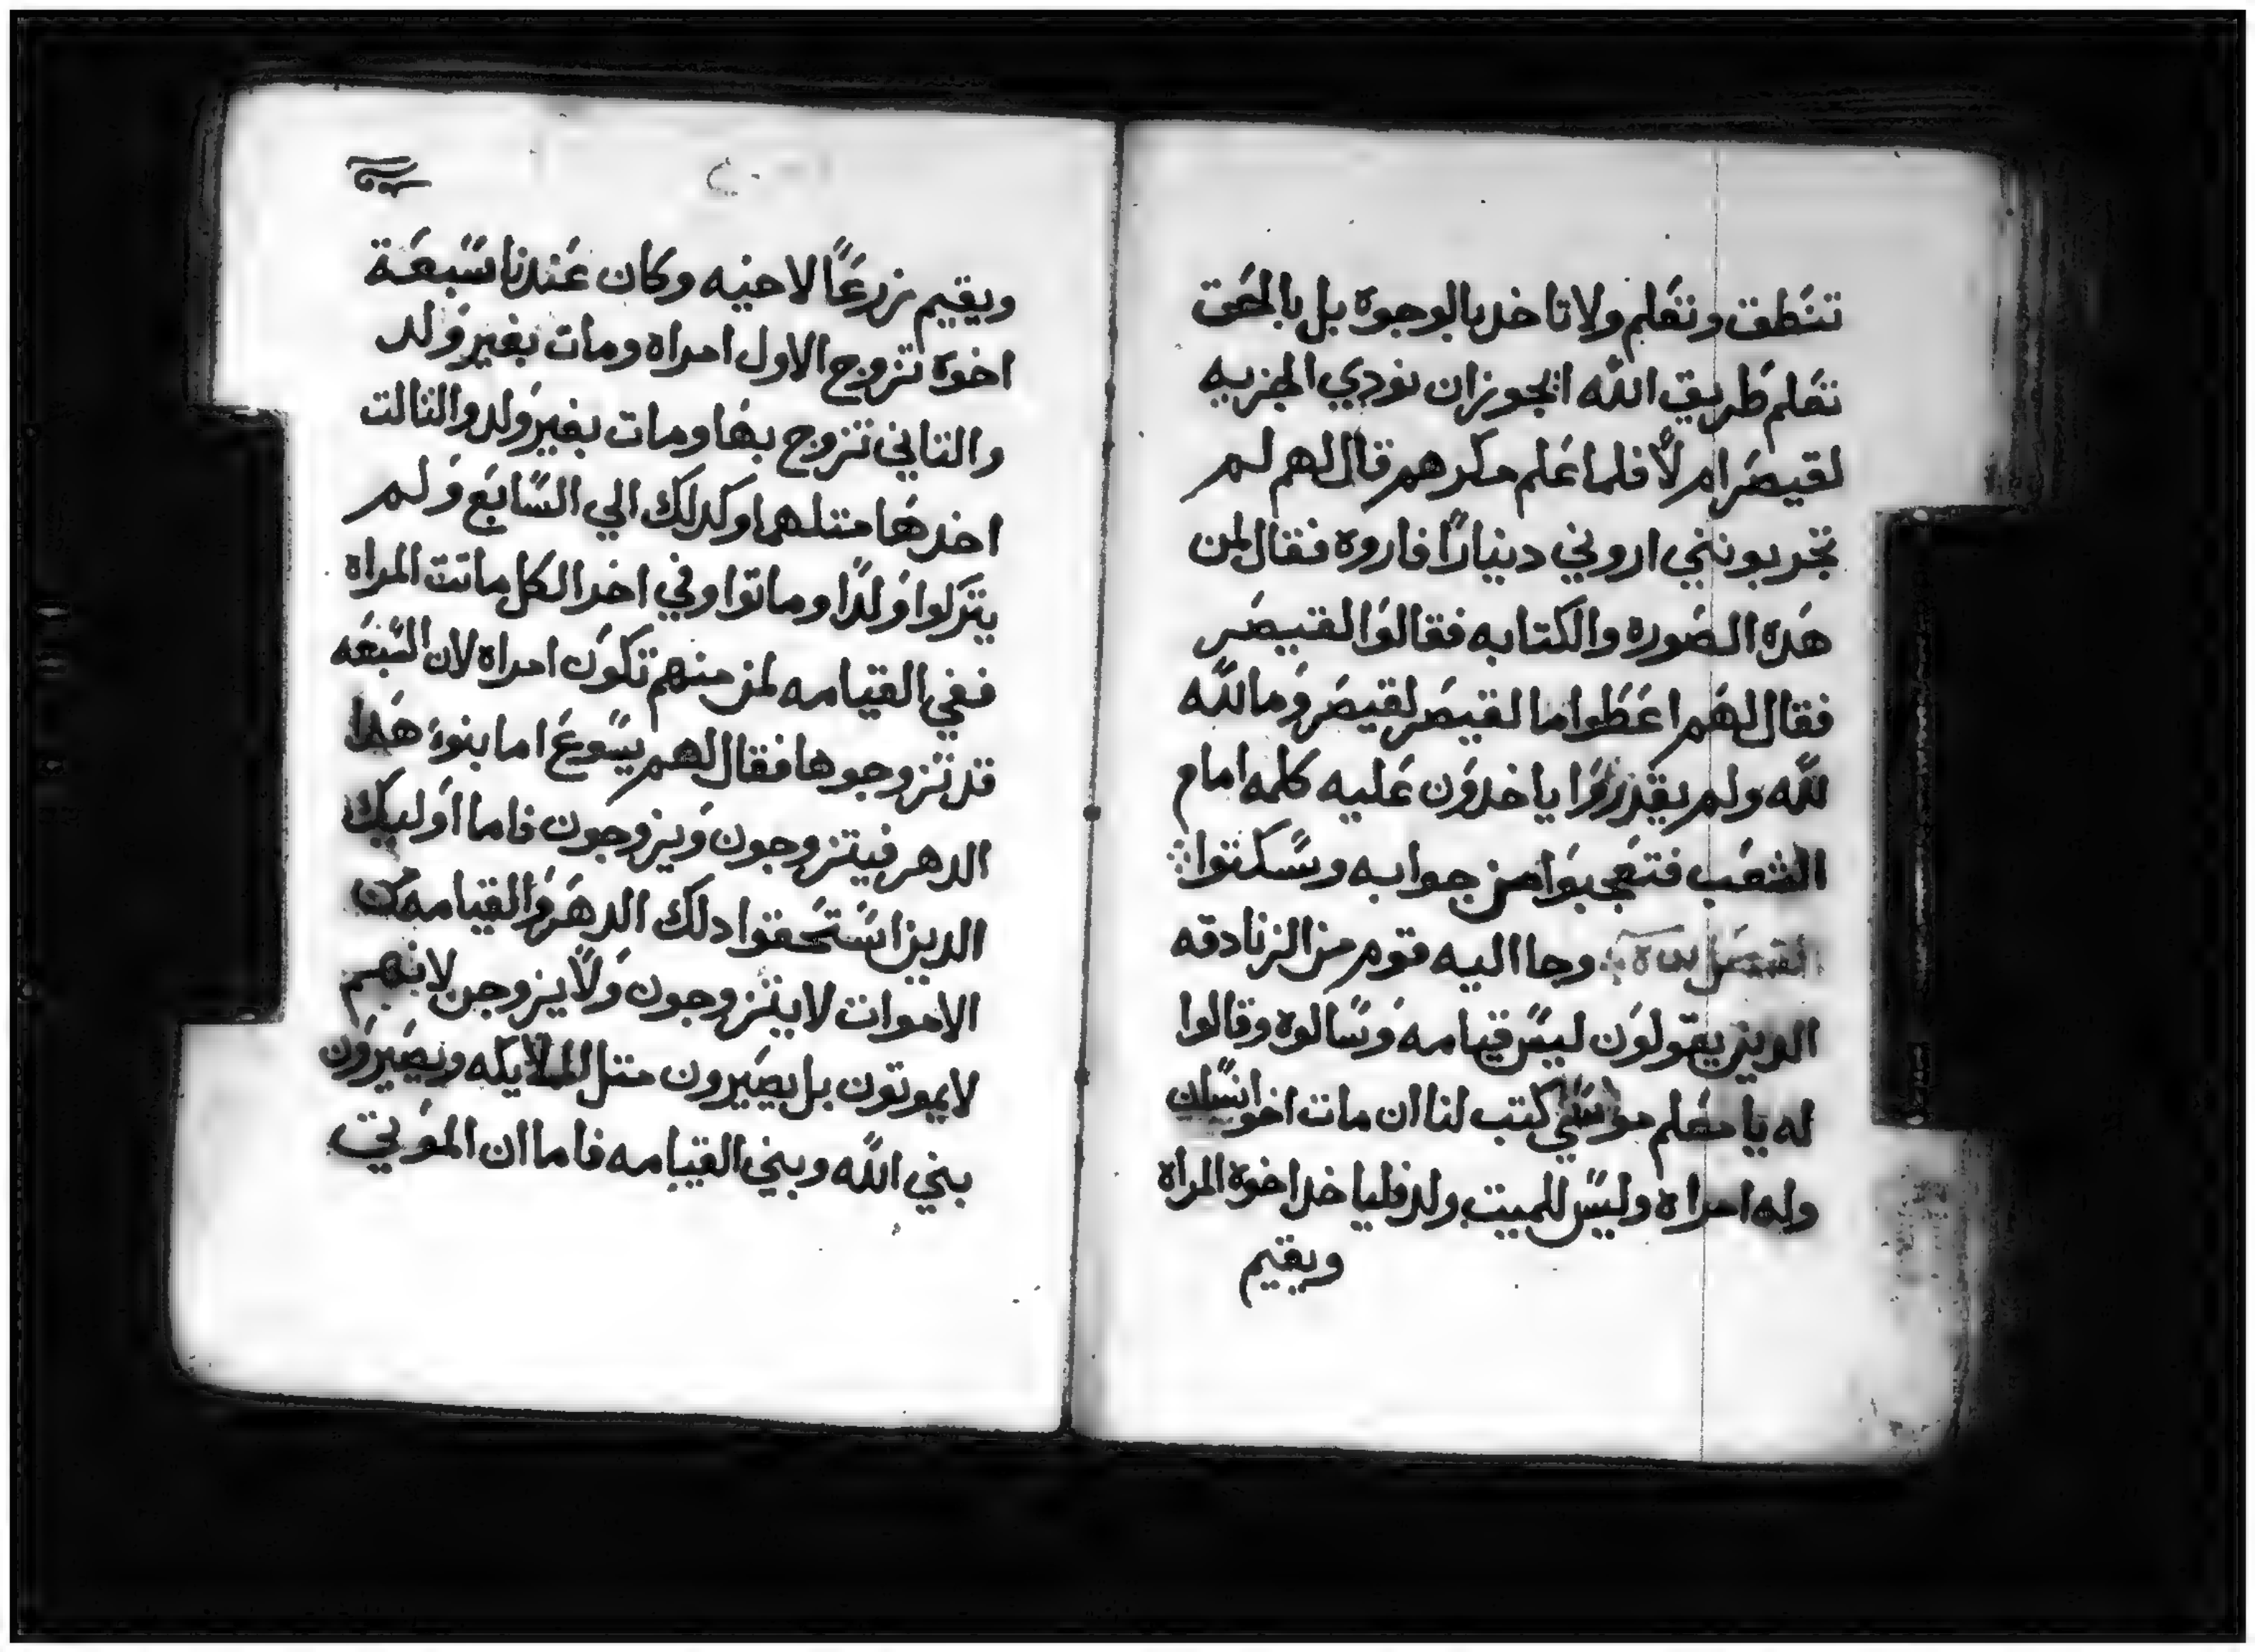 تنطق وتعلم ولا تاخد بالوجوه بل بالحق
تعلم طريق الله ايجوز ان نودي الجزيه
لقيصر ام لا فلما علم مكرهم قال لهم لم
تجربونني اروني دينارًا فاروه فقال لمن
هده الصوره والكتابه فقالوا لقيصر
فقال لهم اعطوا ما لقيصر لقيصر وما لله
لله ولم يقدروا ياخدون عليه كلمه امام
الشعب فتعجبوا من جوابه وسكتوا
وجا اليه قوم من الزنادقه
الدين يقولون ليس قيامه وسالوه وقالوا
له يا معلم موسي كتب لنا ان مات اخو انسان
وله امراه وليس للميت ولد فلياخد اخوه المراه
ويقيم
ويقيم زرعًا لاخيه وكان عندنا سبعة
اخوه تزوج الاول امراه ومات بغير ولد
والتاني تزوج بها ومات بغير ولد والتالت
اخدها متلهما وكدلك الي السابع ولم
يتركوا ولدًا وماتوا وفي اخر الكل ماتت المراه
ففي القيامه لمن منهم تكون امراه لان السبعه
قد تزوجوها فقال لهم يسوع اما بنو هدا
الدهر فيتزوجون ويزوجون فاما اوليك
الدين استحقوا دلك الدهر والقيامه من
الاموات لا يتزوجون ولا يزوجن لانهم
لا يموتون بل يصيرون متل الملايكه ويصيرون
بني الله وبني القيامه فاما ان الموتي